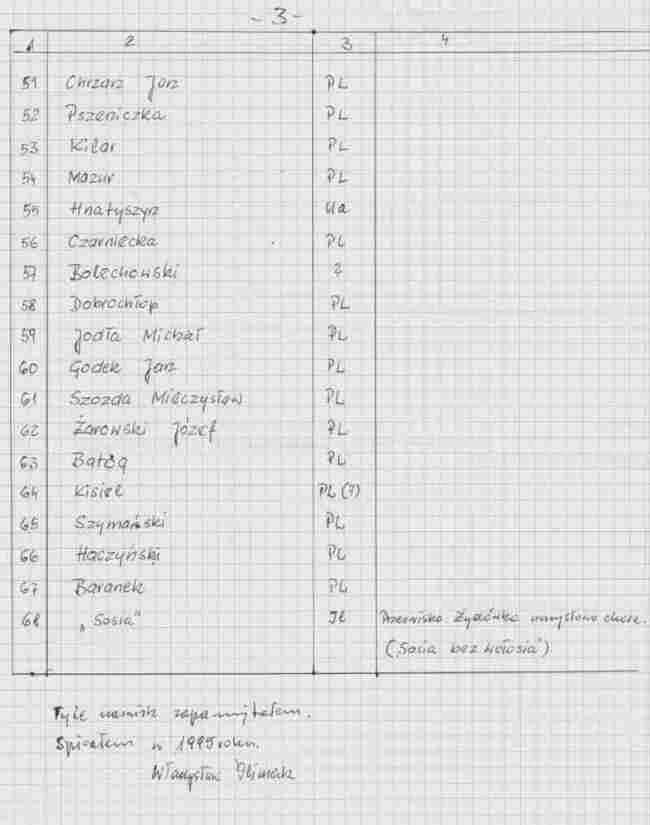 - 3 -
1 2 3 4
51 Chrzan Jan PL
52 Pszeniczka PL
53 Kilar PL
54 Mazur PL
55 Hnatyszyn Ua
56 Czarniecka PL
57 Bolechowski ?
58 Dobrochłop PL
59 Jodła Michał PL
60 Godek Jan PL
61 Szozda Mieczysław PL
62 Żarowski Józef PL
63 Batóg PL
64 Kisiel PL (?)
65 Szymański PL
66 Haczyński PL
67 Baranek PL
68 „Sosia" Przezwisko Żydówka umysłowo chora.
(„Sosia bez wołosia")
Tyle nazwisk zapamiętałem.
Spisałem w 1995 roku.
Władysław